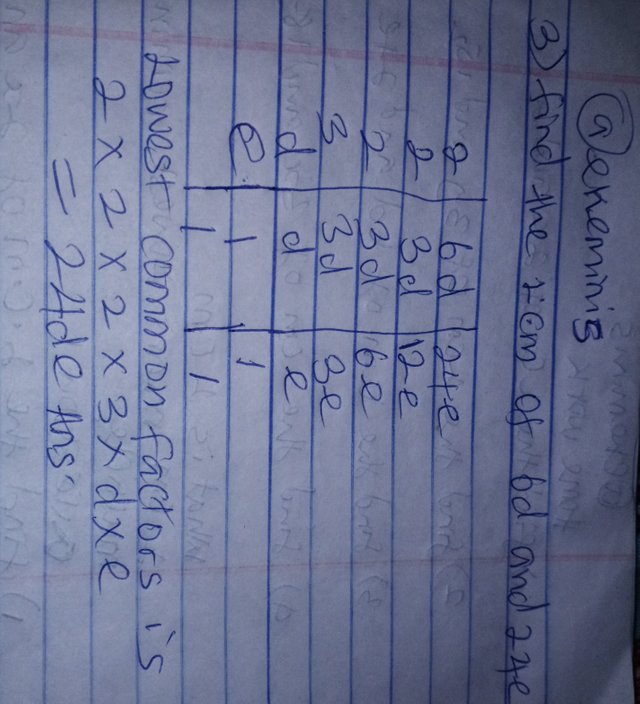 @ekemini5
3) find the LCM of 6d and 24e
2 | 6d | 24e
2 | 3d | 12e
2 | 3d | 6e
3 | 3d | 3e
d | d | e
e | 1 | 1
1 | 1
Lowest common factors is
2 x 2 x 2 x 3 x d x e
= 24de Ans.